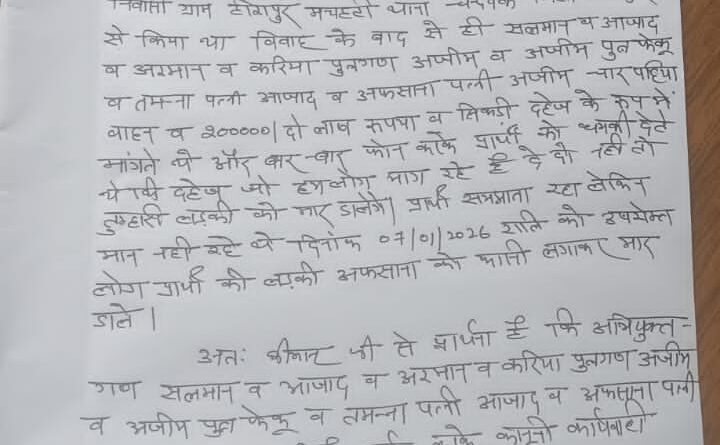 निवासी ग्राम हीरापुर मचहटी थाना
से किया था विवाह के बाद से ही सलमान व आजाद
व अरमान व करिया पुत्रगण अजीम व अजीम पुत्र फेकू
व तमन्ना पत्नी आजाद व अफसाना पत्नी अजीम चार पहिया
वाहन व 200000/ दो लाख रूपया व सिकड़ी दहेज के रूप में
मांगते थे और बार-बार फोन करके प्रार्थी को धमकी देते
थे कि दहेज जो हमलोग मांग रहे है दे दो नहीं तो
तुम्हारी लड़की को मार डालेंगे। प्रार्थी समझाता रहा लेकिन
मान नही रहे थे दिनांक 07/01/2026 रात्रि को उपरोक्त
लोग प्रार्थी की लड़की अफसाना को फासी लगाकर मार
डाले।
अतः श्रीमान जी से प्रार्थना है कि अभियुक्त-
गण सलमान व आजाद व अरमान व करिया पुत्रगण अजीम
व अजीम पुत्र फेकू व तमन्ना पत्नी आजाद व अफसाना पत्नी
करके कानूनी कार्यवाही